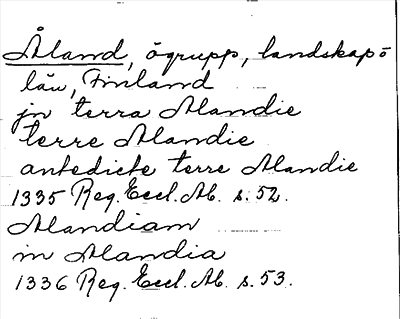 Åland, ögrupp, landskap o
län, Finland
jn terra Alandie
terre Alandie
antedicte terre Alandie
1335 Reg. Eccl. Ab. s. 52.
Alandiam
in Alandia
1336 Reg. Eccl. Ab. s. 53.